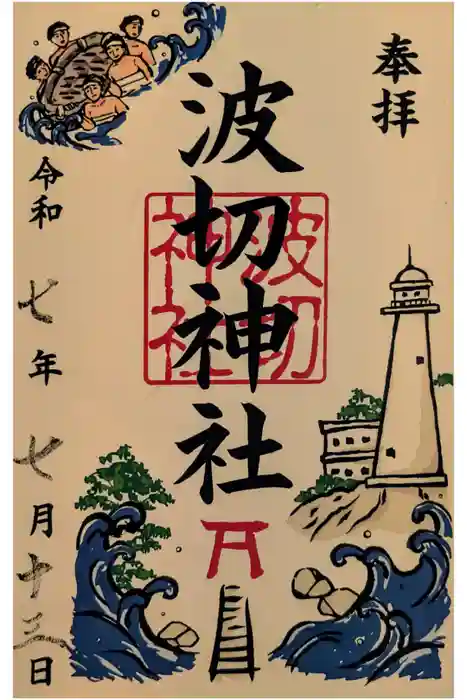 奉拝
波切神社
波切
神社
令和七年七月十三日